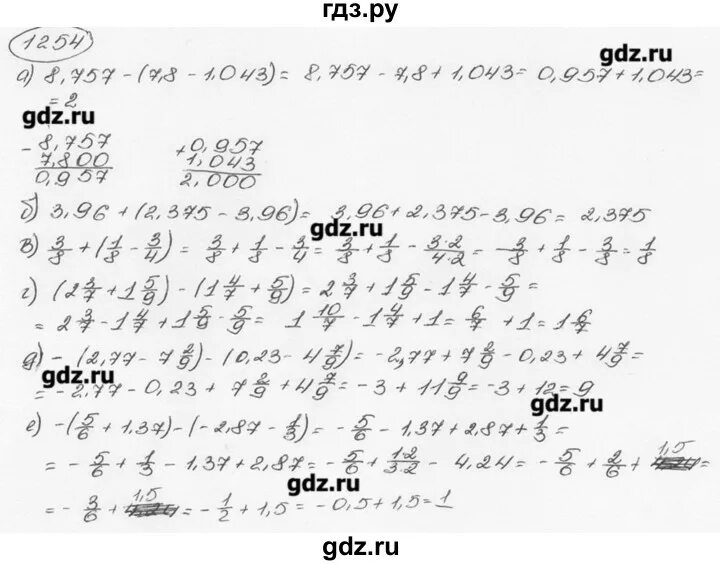 гдз.ру
1254
gdz.ru
а) 8,757 - (7,8 - 1,043) = 8,757 - 7,8 + 1,043 = 0,957 + 1,043 =
= 2
gdz.ru
- 8,757 + 0,957
7,800 1,043
0,957 2,000
б) 3,96 + (2,375 - 3,96) = 3,96 + 2,375 - 3,96 = 2,375
gdz.ru
в) 3/8 + (1/8 - 3/4) = 3/8 + 1/8 - 3/4 = 3/8 + 1/8 - 3·2/4·2 = 3/8 + 1/8 - 3/8 = 1/8
г) (2 3/7 + 1 5/9) - (1 4/7 + 5/9) = 2 3/7 + 1 5/9 - 1 4/7 - 5/9 =
= 2 3/7 - 1 4/7 + 1 5/9 - 5/9 = 1 10/7 - 1 4/7 + 1 = 6/7 + 1 = 1 6/7
д) - (2,77 - 7 2/9) - (0,23 - 4 7/9) = -2,77 + 7 2/9 - 0,23 + 4 7/9 =
gdz.ru
= -2,77 - 0,23 + 7 2/9 + 4 7/9 = -3 + 11 9/9 = -3 + 12 = 9
gdz.ru
е) -(5/6 + 1,37) - (-2,87 - 1/3) = -5/6 - 1,37 + 2,87 + 1/3 =
= -5/6 + 1/3 - 1,37 + 2,87 = -5/6 + 1·2/3·2 - 4,24 = -5/6 + 2/6 + 1,5 =
gdz.ru
= -3/6 + 1,5 = -1/2 + 1,5 = -0,5 + 1,5 = 1
gdz.ru